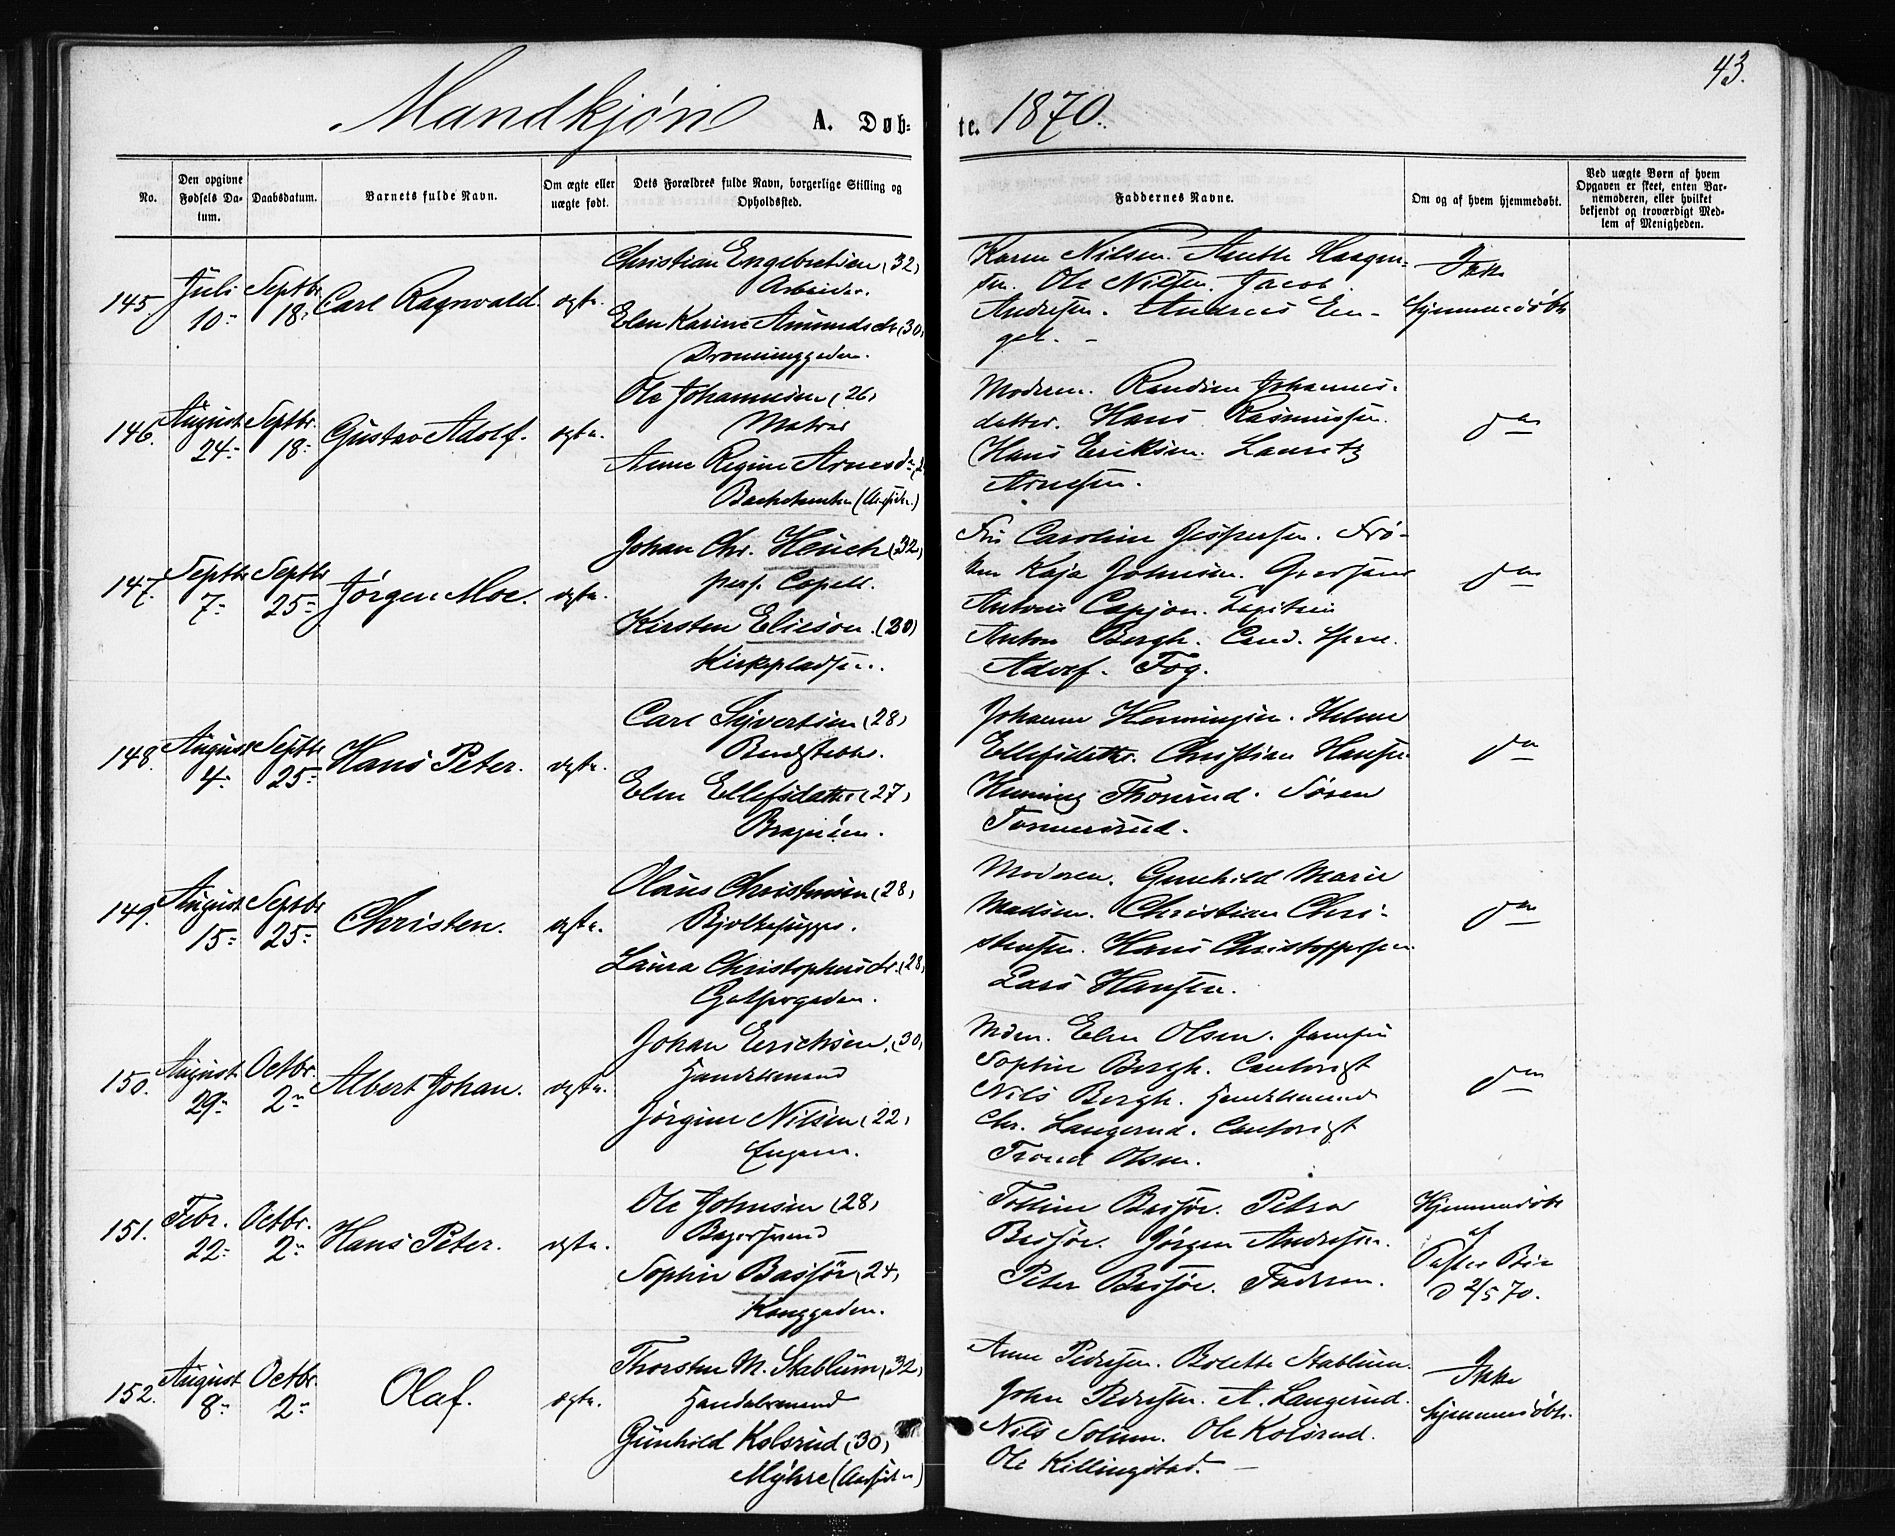 43.
Mandkjøn A. Døb-
te. 1870.
No.
Den opgivne Fødsels Da-
tum.
Daabsdatum.
Barnets fulde Navn.
Om ægte eller
uægte født.
Dets Forældres fulde Navn, borgerlige Stilling og
Opholdssted.
Faddernes Navne.
Om og af hvem hjemmedøbt.
Ved uægte Børn af hvem
Opgaven er skeet, enten Bar-
nemoderen, eller hvilket
bekjendt og troværdigt Med-
lem af Menigheden.
145.
Juli
10-
Septbr
18-
Carl Ragnvald.
ægte.
Christian Engebretsen (32)
Arbeider.
Elen Karine Amundsdr (30)
Dronninggaden.
Karen Nilsen. Anette Haagen-
sen. Ole Nilsen. Jacob
Andresen. Andreas En-
gel. -
Ikke
hjemmedøbt
146.
August
24-
Septbr.
18-
Gustav Adolf.
ægte.
Ole Johannesen (26)
Matros
Anne Regine Arnesdr
Moderen. Randine Johannes-
datter. Hans Rasmussen.
Hans Eriksen. Lauritz
Arnesen.
do
147.
Septbr
7-
Septbr
25-
Jørgen Moe.
ægte.
Johan Chr. Heuch (32)
pers. Capell.
Kirsten Elieson. (30)
Kirkepladsen.
Fru Caroline Jespersen. Frø-
ken Kaja Johnsen.
Anton Bergh. Cand.
Adolf. Fog.
do
148.
August
4-
Septbr
25-
Hans Peter.
ægte.
Carl Syvertsen (28)
Elen Ellefsdatter (27)
Bragøen.
Johanne Henningsen. Helene
Ellefsdatter. Christian Hansen.
Henning Thorsrud. Søren
do
149.
August
15-
Septbr
25-
Christen.
ægte.
Olaus Christensen (28)
Bjelkehugger.
Laura Christophersdr. (28)
Moderen. Gunhild Marie
Madsen. Christian Chri-
stensen. Hans Christoffersen
Lars Hansen.
do
150.
August
29-
Octbr.
2-
Albert Johan.
ægte.
Johan Erichsen. (30)
Handelsmand
Jørgine Nilsen (22)
Engene.
Mdren. Elen Olsen. Jomfru
Sophie Bergh. Contorist
Nils Bergh. Handelsmand
Chr. Langerud. Contorist
Trond Olsen.
do
151.
Febr.
22-
Octbr.
2-
Hans Peter.
ægte.
Ole Johnsen (28)
Bagersvend
Sophie Basjør (24)
Konggaden.
Basjør. Petra
Basjør. Jørgen Andresen.
Peter Basjør. Faderen.
Hjemmedøbt
af
D 2/5 70.
152.
August
8-
Octbr.
2-
Olaf.
ægte.
Thorsten M. Stablum (32)
Handelsmand
Gunhild Kolsrud (30)
Myhre
Anne Pedersen. Bolette Stablum.
John Pedersen. A. Langerud.
Nils Solum. Ole Kolsrud.
Ole Killingstad. -
Ikke
hjemmedøbt.